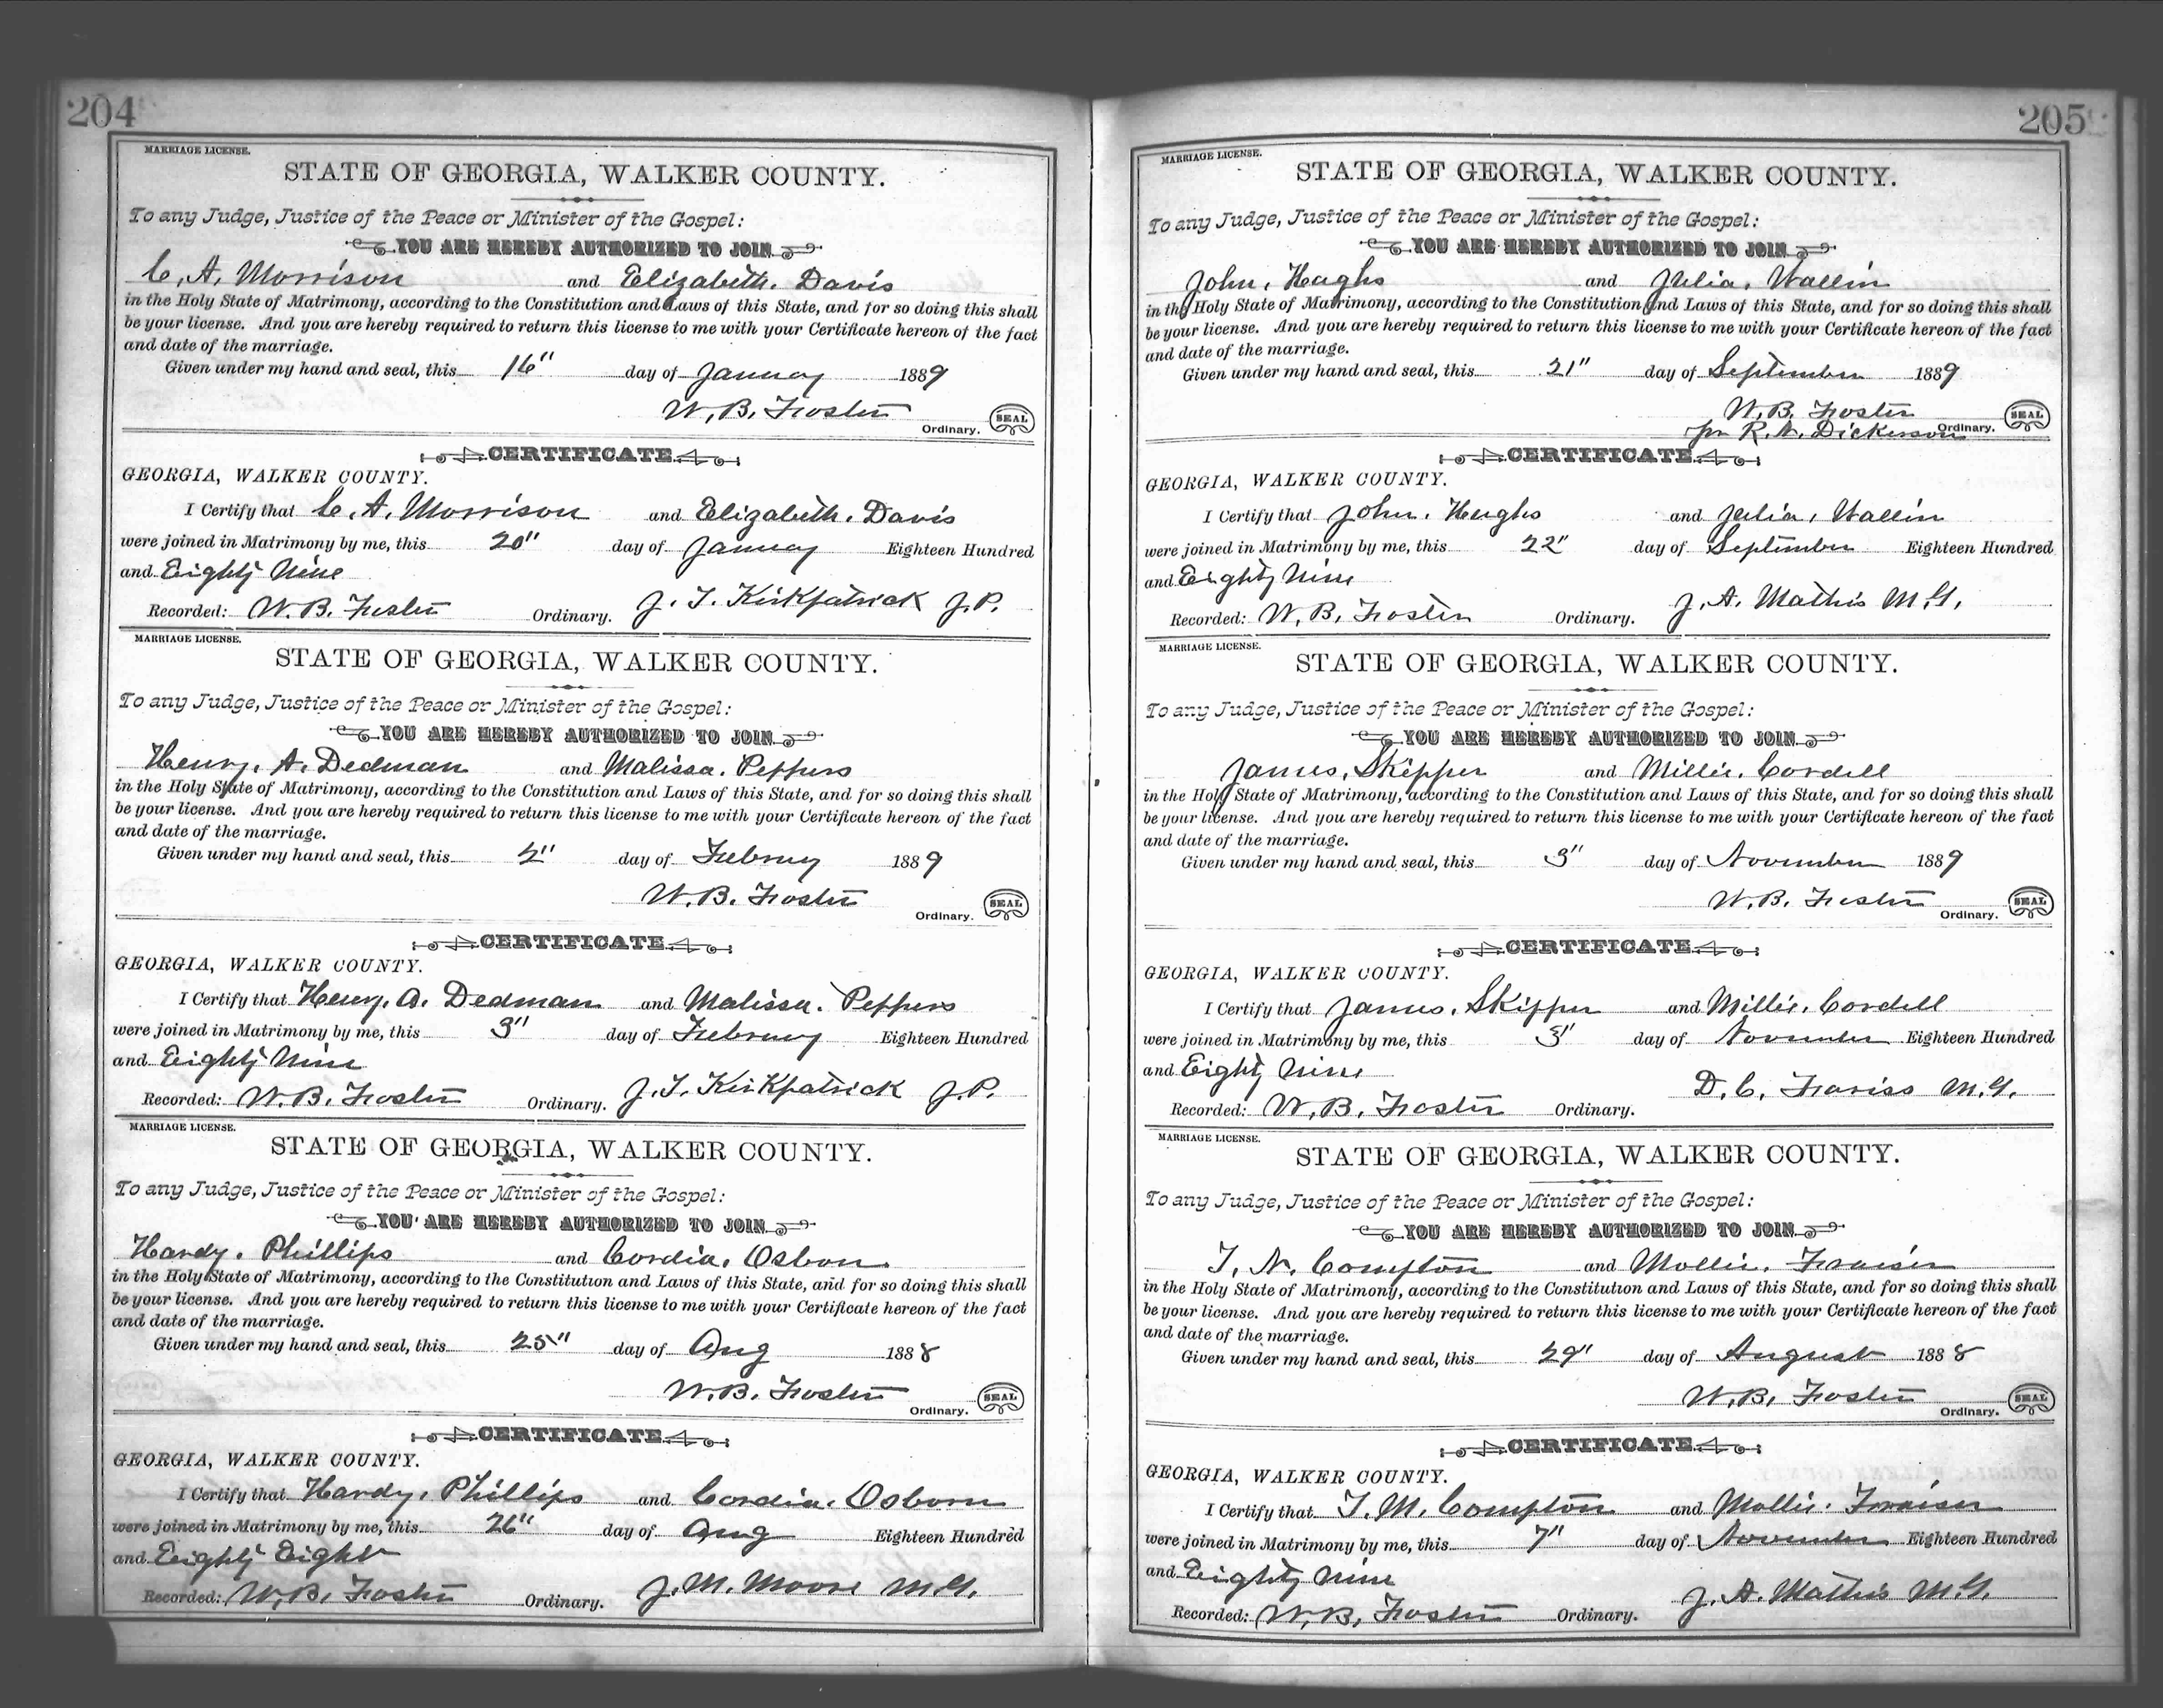 204
MARRIAGE LICENSE.
STATE OF GEORGIA, WALKER COUNTY.
To any Judge, Justice of the Peace or Minister of the Gospel:
YOU ARE HEREBY AUTHORIZED TO JOIN
C. A. Morrison and Elizabeth. Davis
in the Holy State of Matrimony, according to the Constitution and Laws of this State, and for so doing this shall
be your license. And you are hereby required to return this license to me with your Certificate hereon of the fact
and date of the marriage.
Given under my hand and seal, this 16" day of January 1889
W. B. Foster
Ordinary. SEAL
CERTIFICATE
GEORGIA, WALKER COUNTY.
I Certify that C. A. Morrison and Elizabeth. Davis
were joined in Matrimony by me, this 20" day of January Eighteen Hundred
and Eighty Nine
Recorded: W. B. Foster Ordinary. J. T. Kirkpatrick J.P.
MARRIAGE LICENSE.
STATE OF GEORGIA, WALKER COUNTY.
To any Judge, Justice of the Peace or Minister of the Gospel:
YOU ARE HEREBY AUTHORIZED TO JOIN
Henry. A. Dedman and Malissa. Peppers
in the Holy State of Matrimony, according to the Constitution and Laws of this State, and for so doing this shall
be your license. And you are hereby required to return this license to me with your Certificate hereon of the fact
and date of the marriage.
Given under my hand and seal, this 2" day of Februry 1889
W. B. Foster
Ordinary. SEAL
CERTIFICATE
GEORGIA, WALKER COUNTY.
I Certify that Henry. A. Dedman and Malissa. Peppers
were joined in Matrimony by me, this 3" day of Februry Eighteen Hundred
and Eighty Nine
Recorded: W. B. Foster Ordinary. J. T. Kirkpatrick J.P.
MARRIAGE LICENSE.
STATE OF GEORGIA, WALKER COUNTY.
To any Judge, Justice of the Peace or Minister of the Gospel:
YOU ARE HEREBY AUTHORIZED TO JOIN
Hardy. Phillips and Cordia. Osborn
in the Holy State of Matrimony, according to the Constitution and Laws of this State, and for so doing this shall
be your license. And you are hereby required to return this license to me with your Certificate hereon of the fact
and date of the marriage.
Given under my hand and seal, this 25" day of Aug 1888
W. B. Foster
Ordinary. SEAL
CERTIFICATE
GEORGIA, WALKER COUNTY.
I Certify that Hardy. Phillips and Cordia. Osborn
were joined in Matrimony by me, this 26" day of Aug Eighteen Hundred
and Eighty Eight
Recorded: W. B. Foster Ordinary. J. M. Moore M.G.
205
MARRIAGE LICENSE.
STATE OF GEORGIA, WALKER COUNTY.
To any Judge, Justice of the Peace or Minister of the Gospel:
YOU ARE HEREBY AUTHORIZED TO JOIN
John. Hughs and Julia. Wallin
in the Holy State of Matrimony, according to the Constitution and Laws of this State, and for so doing this shall
be your license. And you are hereby required to return this license to me with your Certificate hereon of the fact
and date of the marriage.
Given under my hand and seal, this 21" day of September 1889
W. B. Foster
per R. N. Dickerson Ordinary. SEAL
CERTIFICATE
GEORGIA, WALKER COUNTY.
I Certify that John. Hughs and Julia. Wallin
were joined in Matrimony by me, this 22" day of September Eighteen Hundred
and Eighty Nine
Recorded: W. B. Foster Ordinary. J. A. Mathis M.G.
MARRIAGE LICENSE.
STATE OF GEORGIA, WALKER COUNTY.
To any Judge, Justice of the Peace or Minister of the Gospel:
YOU ARE HEREBY AUTHORIZED TO JOIN
James. Skipper and Millie. Cordell
in the Holy State of Matrimony, according to the Constitution and Laws of this State, and for so doing this shall
be your license. And you are hereby required to return this license to me with your Certificate hereon of the fact
and date of the marriage.
Given under my hand and seal, this 3" day of November 1889
W. B. Foster
Ordinary. SEAL
CERTIFICATE
GEORGIA, WALKER COUNTY.
I Certify that James. Skipper and Millie. Cordell
were joined in Matrimony by me, this 3" day of November Eighteen Hundred
and Eighty Nine
D. C. Fariss M.G.
Recorded: W. B. Foster Ordinary.
MARRIAGE LICENSE.
STATE OF GEORGIA, WALKER COUNTY.
To any Judge, Justice of the Peace or Minister of the Gospel:
YOU ARE HEREBY AUTHORIZED TO JOIN
T. N. Compton and Mollie. Fraiser
in the Holy State of Matrimony, according to the Constitution and Laws of this State, and for so doing this shall
be your license. And you are hereby required to return this license to me with your Certificate hereon of the fact
and date of the marriage.
Given under my hand and seal, this 29" day of August 1888
W. B. Foster
Ordinary. SEAL
CERTIFICATE
GEORGIA, WALKER COUNTY.
I Certify that T. M. Compton and Mollie. Fraiser
were joined in Matrimony by me, this 7" day of November Eighteen Hundred
and Eighty Nine
Recorded: W. B. Foster Ordinary. J. A. Mathis M.G.